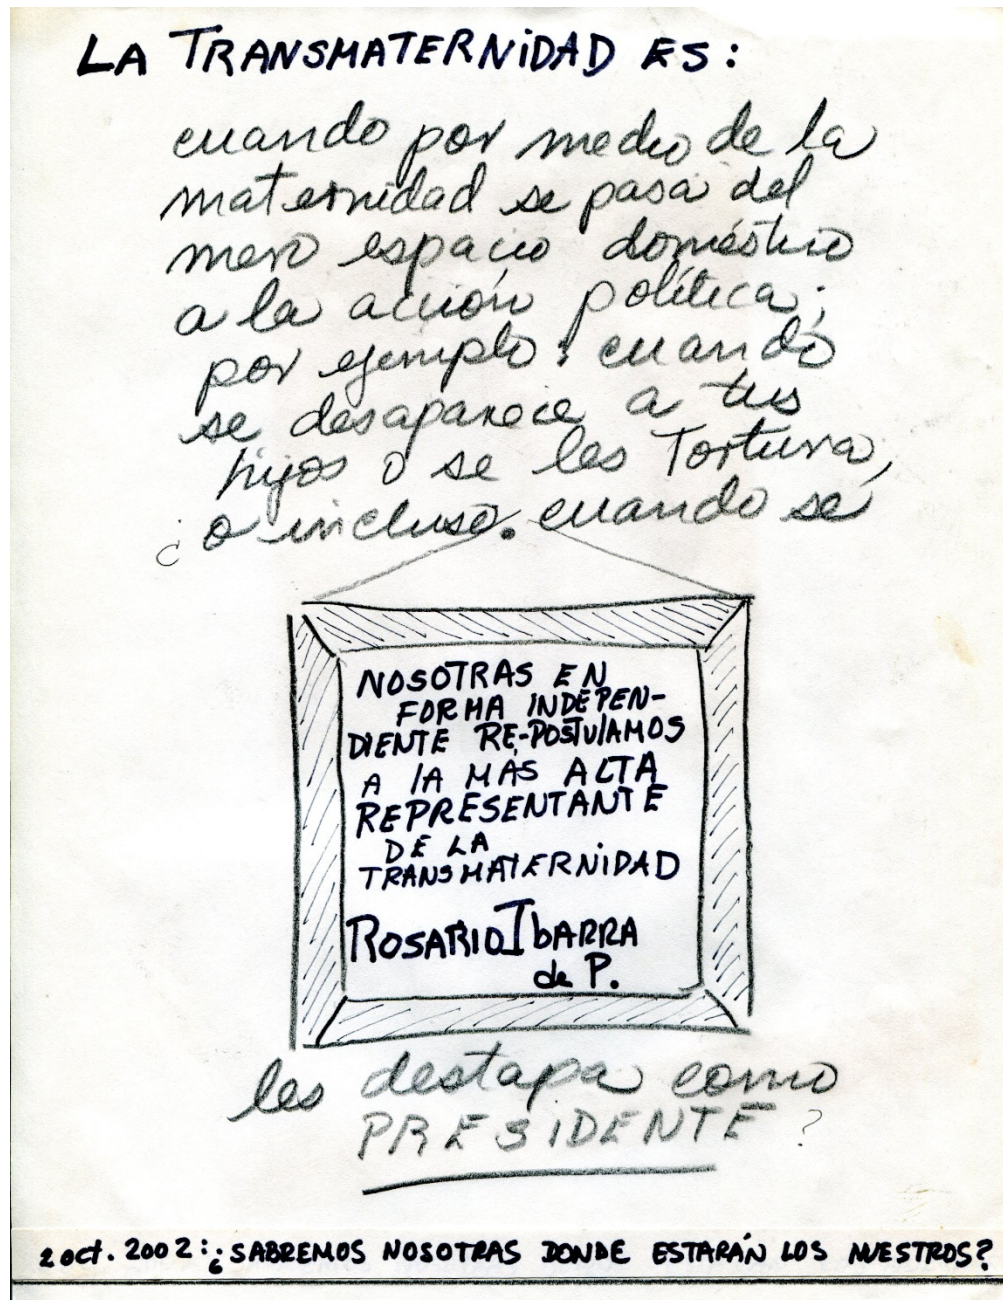 LA TRANSMATERNIDAD ES:
cuando por medio de la
maternidad se pasa del
mero espacio doméstico
a la acción política;
por ejemplo: cuando
se desaparece a tus
hijos o se les Tortura,
¿o incluso. cuando se
NOSOTRAS EN
FORMA INDEPEN-
DIENTE RE-POSTULAMOS
A LA MÁS ALTA
REPRESENTANTE
DE LA
TRANSMATERNIDAD
ROSARIO IBARRA
de P.
les destapa como
PRESIDENTE?
2 oct. 2002: ¿SABREMOS NOSOTRAS DONDE ESTARÁN LOS NUESTROS?